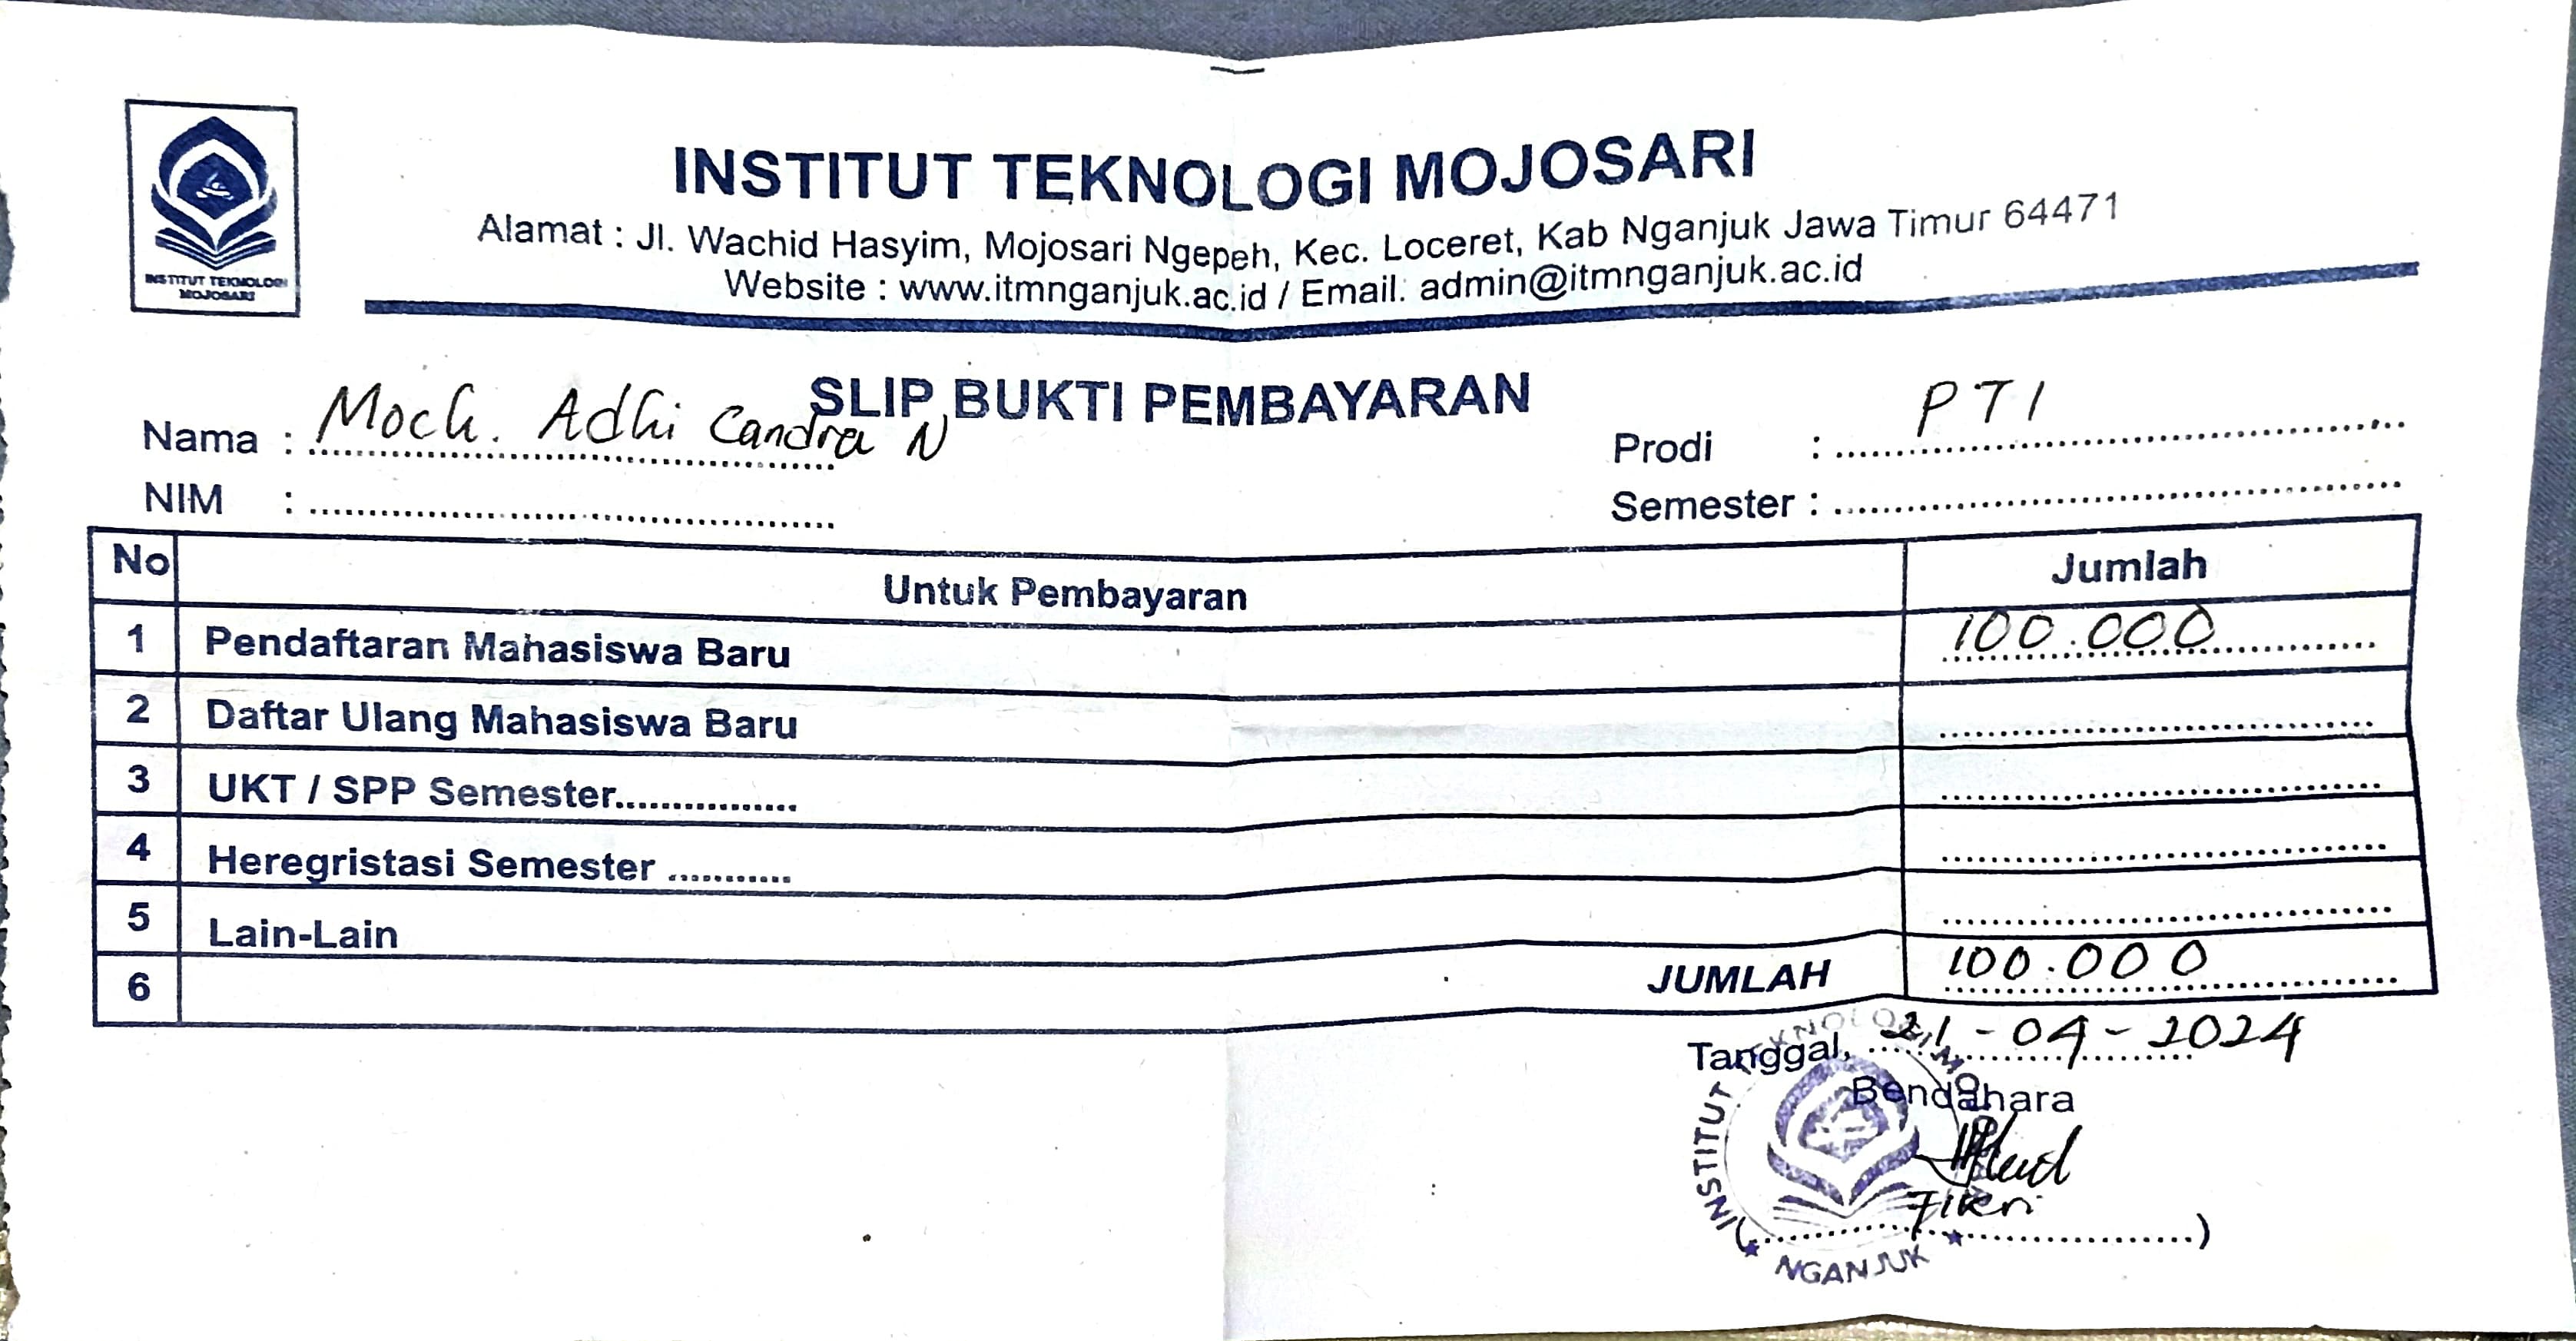 INSTITUT TEKNOLOGI MOJOSARI
Alamat : Jl. Wachid Hasyim, Mojosari Ngepeh, Kec. Loceret, Kab Nganjuk Jawa Timur 64471
Website : www.itmnganjuk.ac.id / Email. admin@itmnganjuk.ac.id
INSTITUT TEKNOLOGI
MOJOSARI
SLIP BUKTI PEMBAYARAN
Nama : Moch. Adhi Candra N
Prodi : PTI
NIM : ..........
Semester : ..........
No Untuk Pembayaran Jumlah
1 Pendaftaran Mahasiswa Baru 100.000
2 Daftar Ulang Mahasiswa Baru ..........
3 UKT / SPP Semester.......... ..........
4 Heregristasi Semester .......... ..........
5 Lain-Lain ..........
6 JUMLAH 100.000
Tanggal, 21-04-2024
Bendahara
Fikri
(..........)
INSTITUT TEKNOLOGI MOJOSARI
NGANJUK